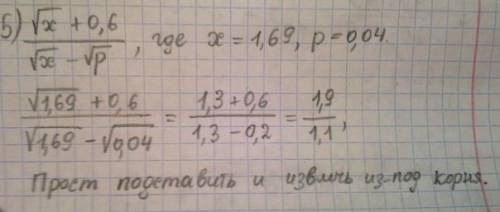 5) (√x + 0,6)/(√x − √p), где x = 1,69, p = 0,04.
(√1,69 + 0,6)/(√1,69 − √0,04) = (1,3 + 0,6)/(1,3 − 0,2) = 1,9/1,1,
Прост подставить и извлечь из-под корня.